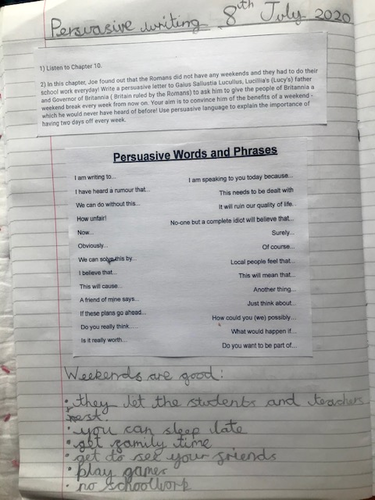 Persuasive writing 8th July 2020
1) Listen to Chapter 10.
2) In this chapter, Joe found out that the Romans did not have any weekends and they had to do their
school work everyday! Write a persuasive letter to Gaius Sallustia Lucullus, Lucillia's (Lucy's) father
and Governor of Britannica ( Britain ruled by the Romans) to ask him to give the people of Britannia a
weekend break every week from now on. Your aim is to convince him of the benefits of a weekend -
which he would never have heard of before! Use persuasive language to explain the importance of
having two days off every week.
Persuasive Words and Phrases
I am writing to...
I have heard a rumour that...
We can do without this...
How unfair!
Now...
Obviously...
We can solve this by...
I believe that...
This will cause...
A friend of mine says...
If these plans go ahead...
Do you really think...
Is it really worth...
I am speaking to you today because...
This needs to be dealt with
It will ruin our quality of life..
No-one but a complete idiot will believe that...
Surely...
Of course...
Local people feel that...
This will mean that...
Another thing...
Just think about...
How could you (we) possibly...
What would happen if...
Do you want to be part of...
Weekends are good:
• they let the students and teachers
rest.
• you can sleep late
• get family time
• get to see your friends
• play games
• no schoolwork